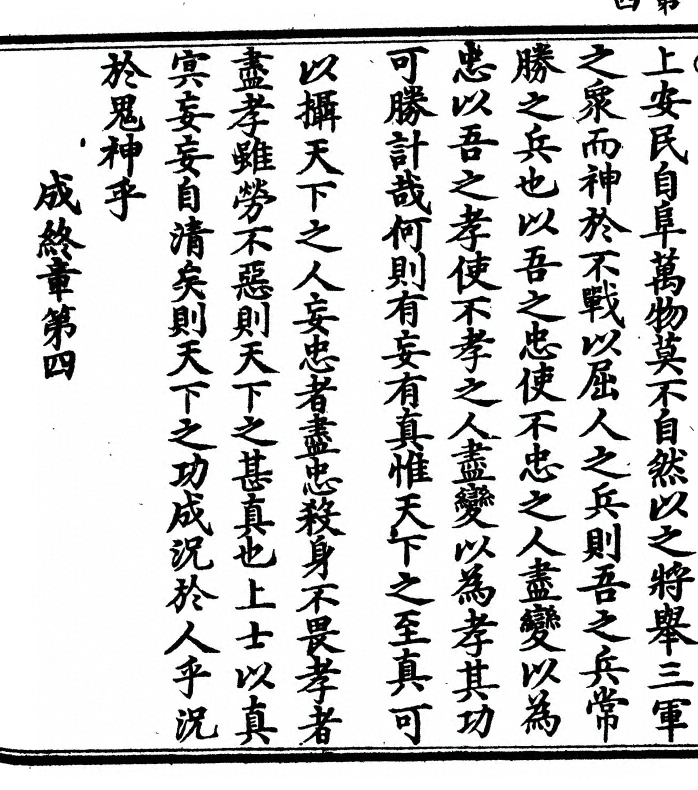 上安民自阜萬物莫不自然以之將舉三軍
之衆而神於不戰以屈人之兵則吾之兵常
勝之兵也以吾之忠使不忠之人盡變以為
忠以吾之孝使不孝之人盡變以為孝其功
可勝計哉何則有妄有真惟天下之至真可
以攝天下之人妄忠者盡忠殺身不畏孝者
盡孝雖勞不惡則天下之甚真也上士以真
冥妄妄自清矣則天下之功成況於人乎況
於鬼神乎
成終章第四